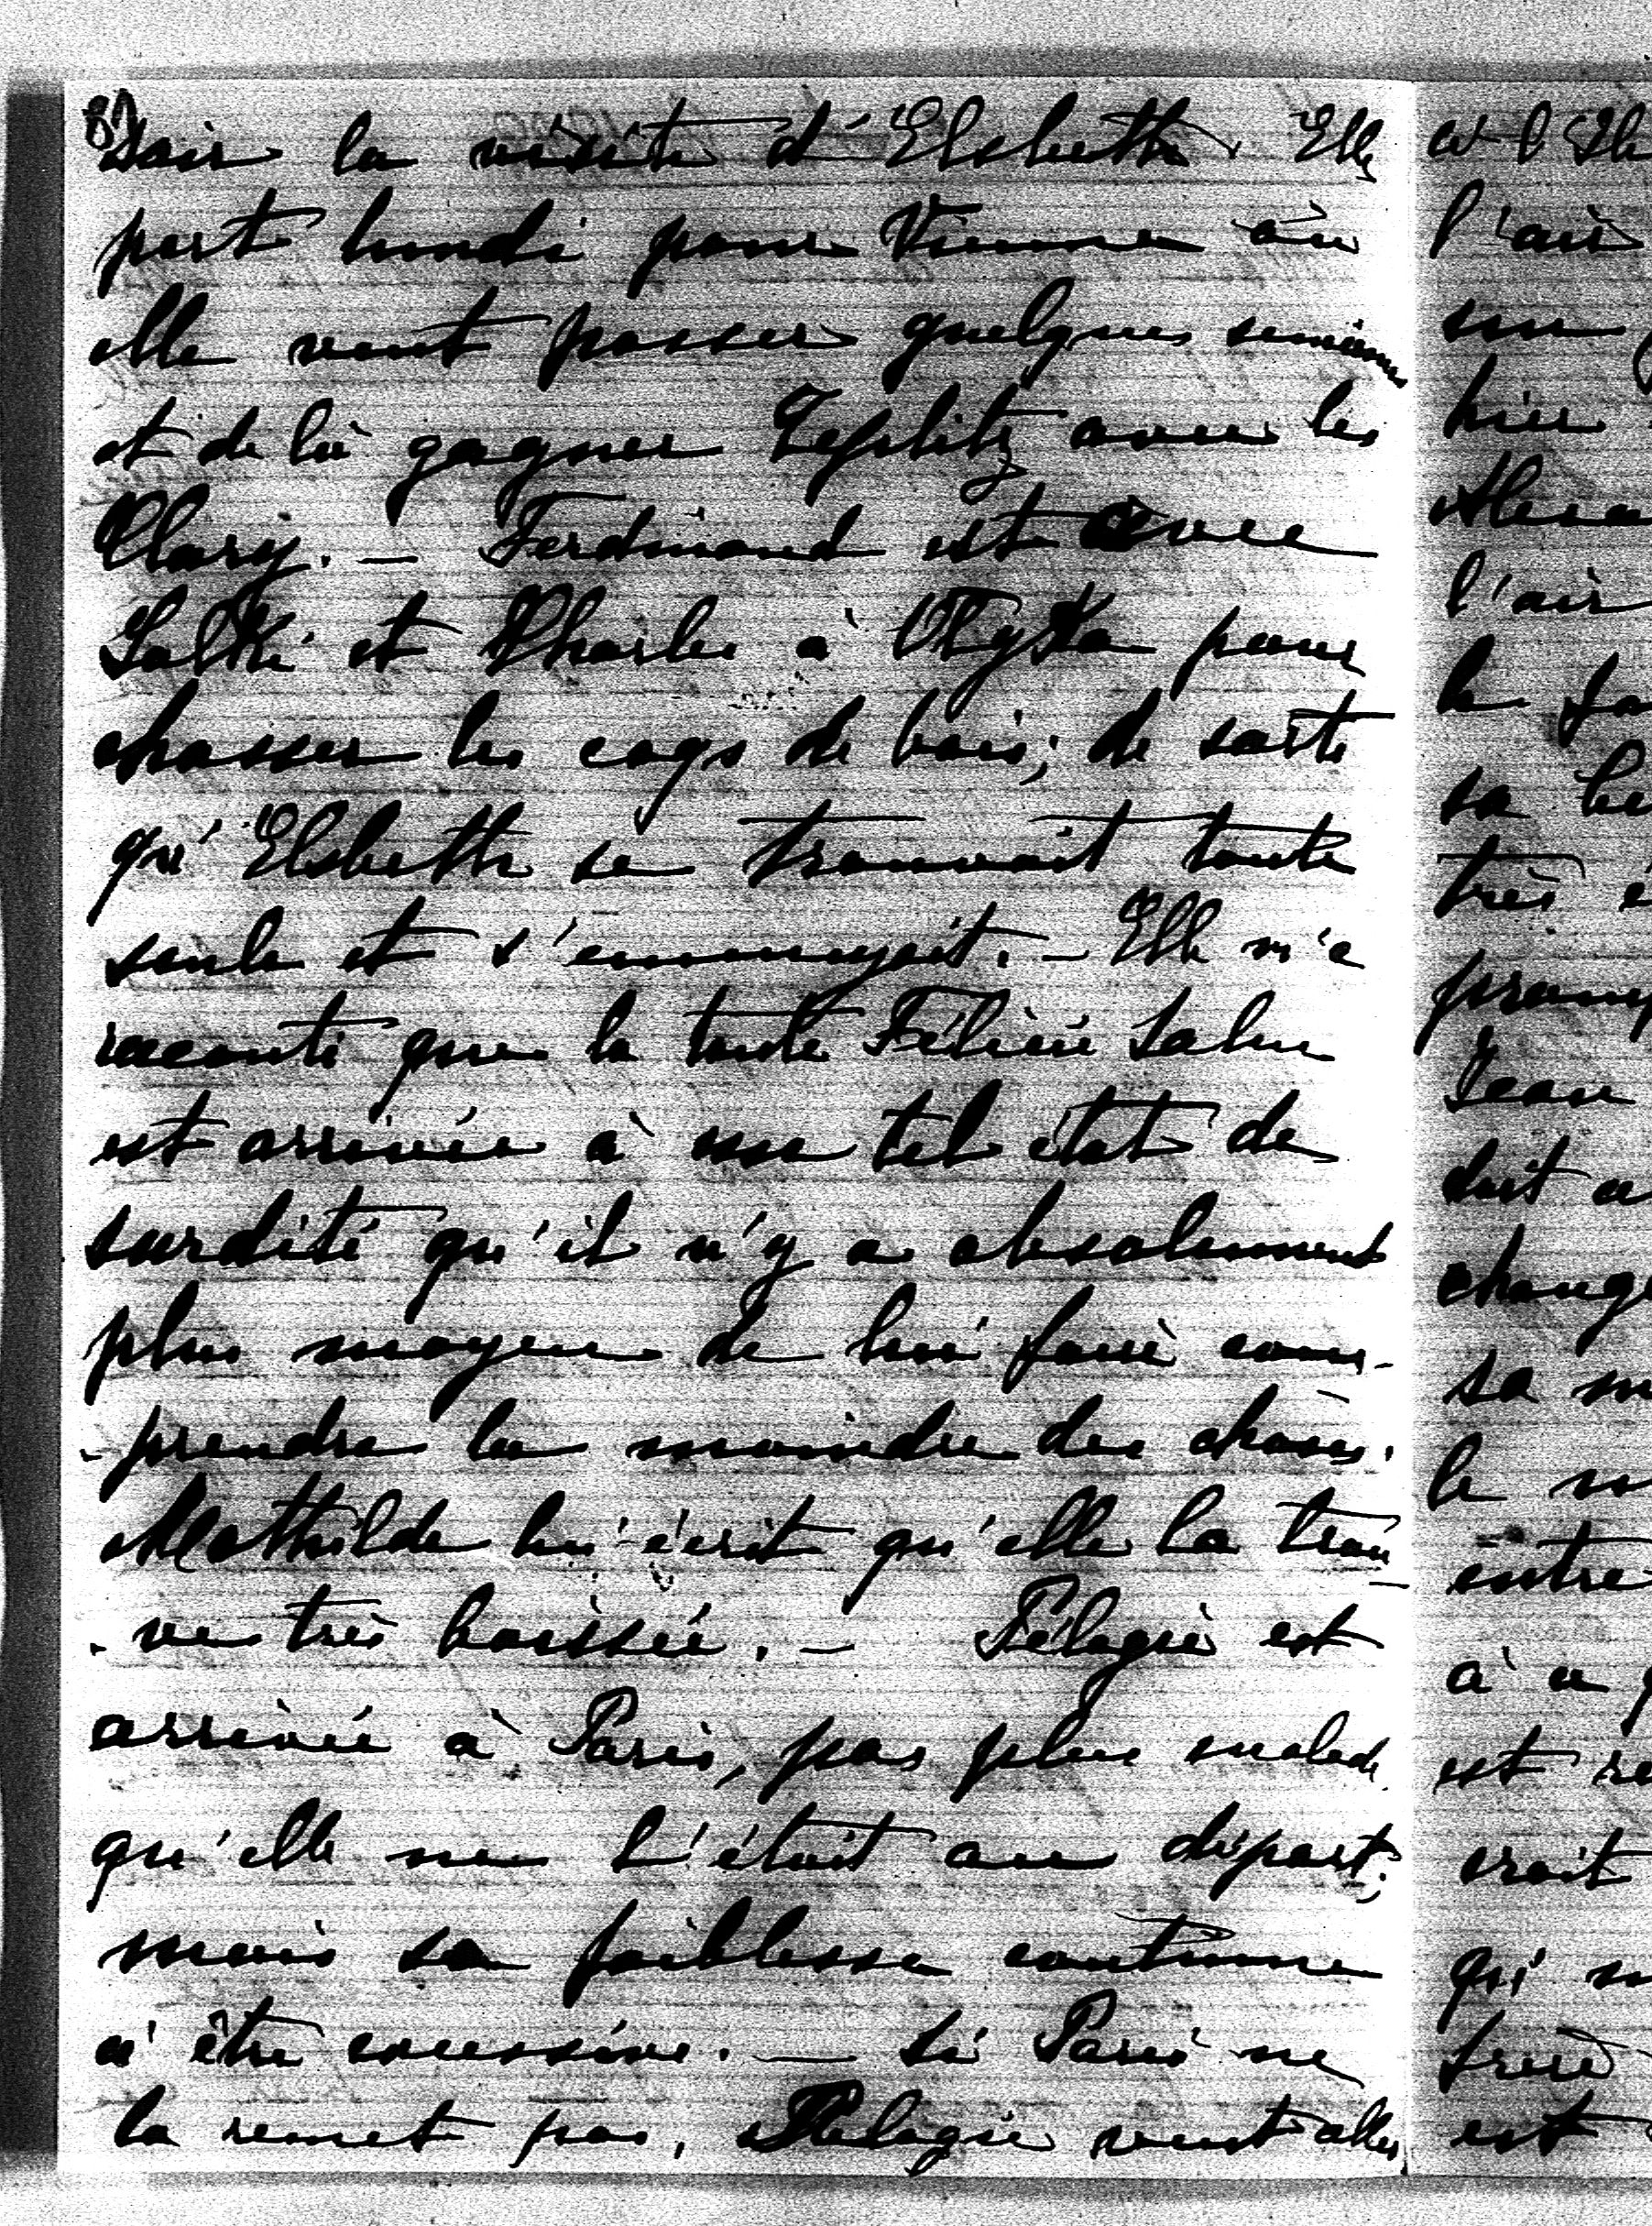 87
soir la visite d'Elsbeth. Elle
part lundi pour Vienne où
elle veut passer quelques semaines
et de là gagner Teplitz avec les
Clary. — Ferdinand est avec
Salki et Charles à Olyka pour
chasser les coqs de bois; de sorte
qu'Elsbeth se trouvait toute
seule et s'ennuyait. — Elle m'a
raconté que la tante Félicie Salm
est arrivée à un tel état de
surdité qu'il n'y a absolument
plus moyen de lui faire com-
-prendre la moindre des choses.
Mathilde lui écrit qu'elle la trou-
-ve très baissée. — Pélagie est
arrivée à Paris, pas plus malade
qu'elle ne l'était au départ;
mais sa faiblesse continue
à être excessive. — Si Paris ne
la remet pas, Pélagie veut aller
l'air
hier
l'air
sa
très
Jean
doit
sa
le
entre
est
qui
est